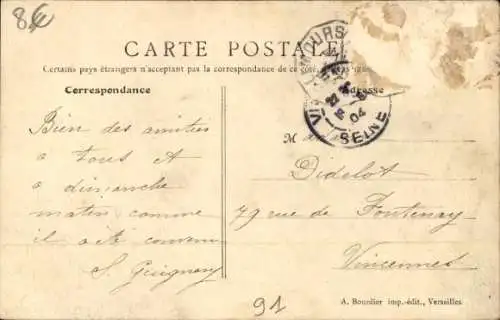 8€
CARTE POSTALE
Certains pays étrangers n'acceptant pas la correspondance de ce côté
Correspondance
Adresse
SEINE
04
Bien des amitiés
à tous et
à dimanche
matin comme
il a été convenu
S. Guignery
M
Didelot
79 rue de Fontenay
Vincennes
91
A. Bourdier imp.-édit., Versailles